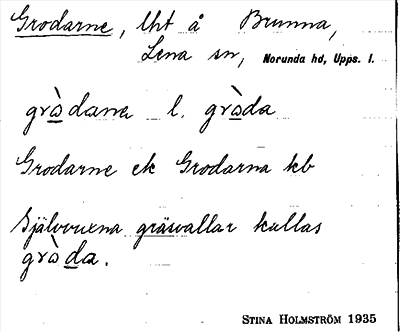 Grodarne, lht å Brunna,
Lena sn, Norunda hd, Upps. l.
grὰdana l. grὰda
Grodarne ek Grodarna kb
Självvuxna gräsvallar kallas
grὰda.
STINA HOLMSTRÖM 1935